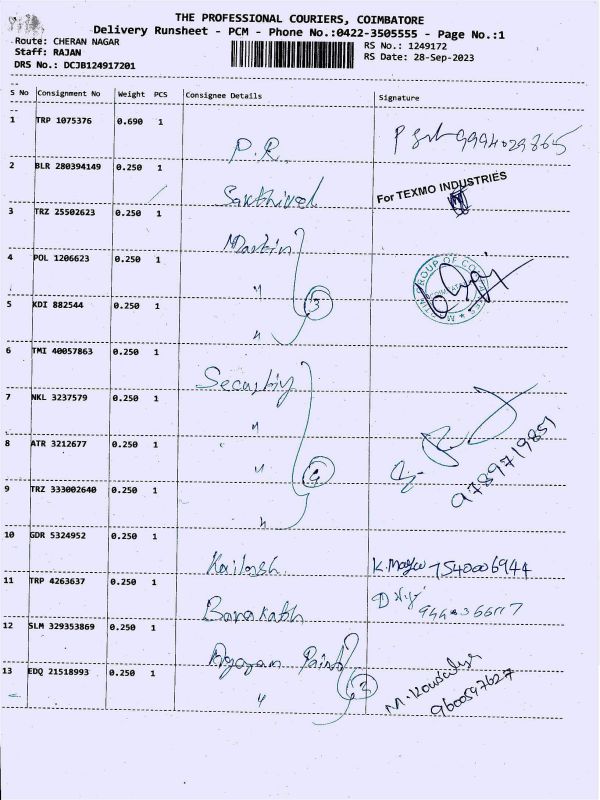 THE PROFESSIONAL COURIERS, COIMBATORE
Delivery Runsheet - PCM - Phone No.:0422-3505555 - Page No.:1
Route: CHERAN NAGAR
Staff: RAJAN
DRS No.: DCJB124917201
RS No.: 1249172
RS Date: 28-Sep-2023
S No Consignment No Weight PCS Consignee Details Signature
1 TRP 1075376 0.690 1 P.R.
2 BLR 280394149 0.250 1 Sakthivel For TEXMO INDUSTRIES
3 TRZ 25502623 0.250 1 Martin
4 POL 1206623 0.250 1 "
5 KDI 882544 0.250 1 " 3
6 TMI 40057863 0.250 1 Security
7 NKL 3237579 0.250 1 "
8 ATR 3212677 0.250 1 " 4
9 TRZ 333002640 0.250 1 " 9789719851
10 GDR 5324952 0.250 1 Kailash 7540006944
11 TRP 4263637 0.250 1 Barakath
12 SLM 329353869 0.250 1
13 EDQ 21518993 0.250 1 " M. Kousalya 9600597627